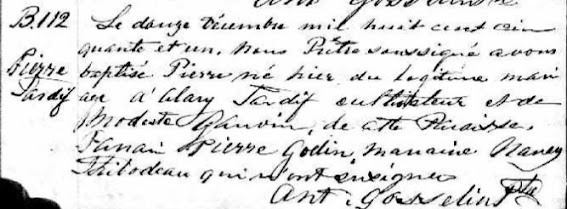 B.112 Le douze décembre mil huit cent cin
quante et un, nous Prêtre soussigné avons
Pierre baptisé Pierre né hier du légitime mari
Tardif age d'Alary Tardif cultivateur et de
Modeste Gauvin, de cette Paroisse.
Parain Pierre Godin, maraine Nancy
Thibodeau qui n'ont su signer
Ant. Gosselin Ptre